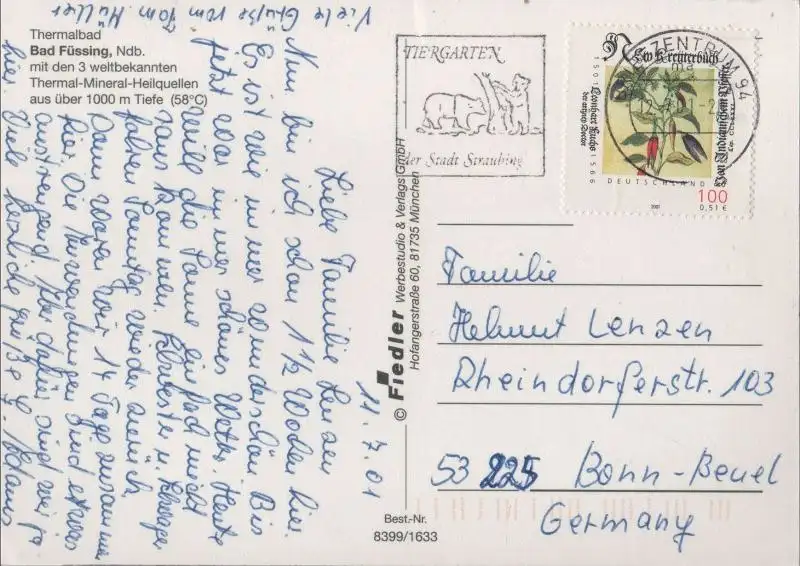 Thermalbad
Bad Füssing, Ndb.
mit den 3 weltbekannten
Thermal-Mineral-Heilquellen
aus über 1000 m Tiefe (58°C)
11.7.01
Liebe Familie Lenzen
Nun bin ich schon 1 1/2 Wochen hier.
Es ist wie immer wunderschön. Bis
jetzt war immer schönes Wetter. Heute
will die Sonne einfach nicht
raus kommen.
fahren Sonntag wieder zurück
Dann waren wir 14 Tage zusammen
hier. Die Anwendungen sind etwas
anstrengend. Aber dafür sind wir ja
hier. Viele herzliche Grüße
Viele Grüße vom Tom. Müller
© Fiedler Werbestudio & Verlags GmbH
Hofangerstraße 60, 81735 München
Best.-Nr.
8399/1633
TIERGARTEN
der Stadt Straubing
BRIEFZENTRUM 94
Ein Kreüterbuch
1501 Leonhart Fuchs 1566
Von Indianischem Pfeffer
DEUTSCHLAND
2001
100
0,51 €
Familie
Helmut Lenzen
Rheindorferstr. 103
53 225 Bonn-Beuel
Germany